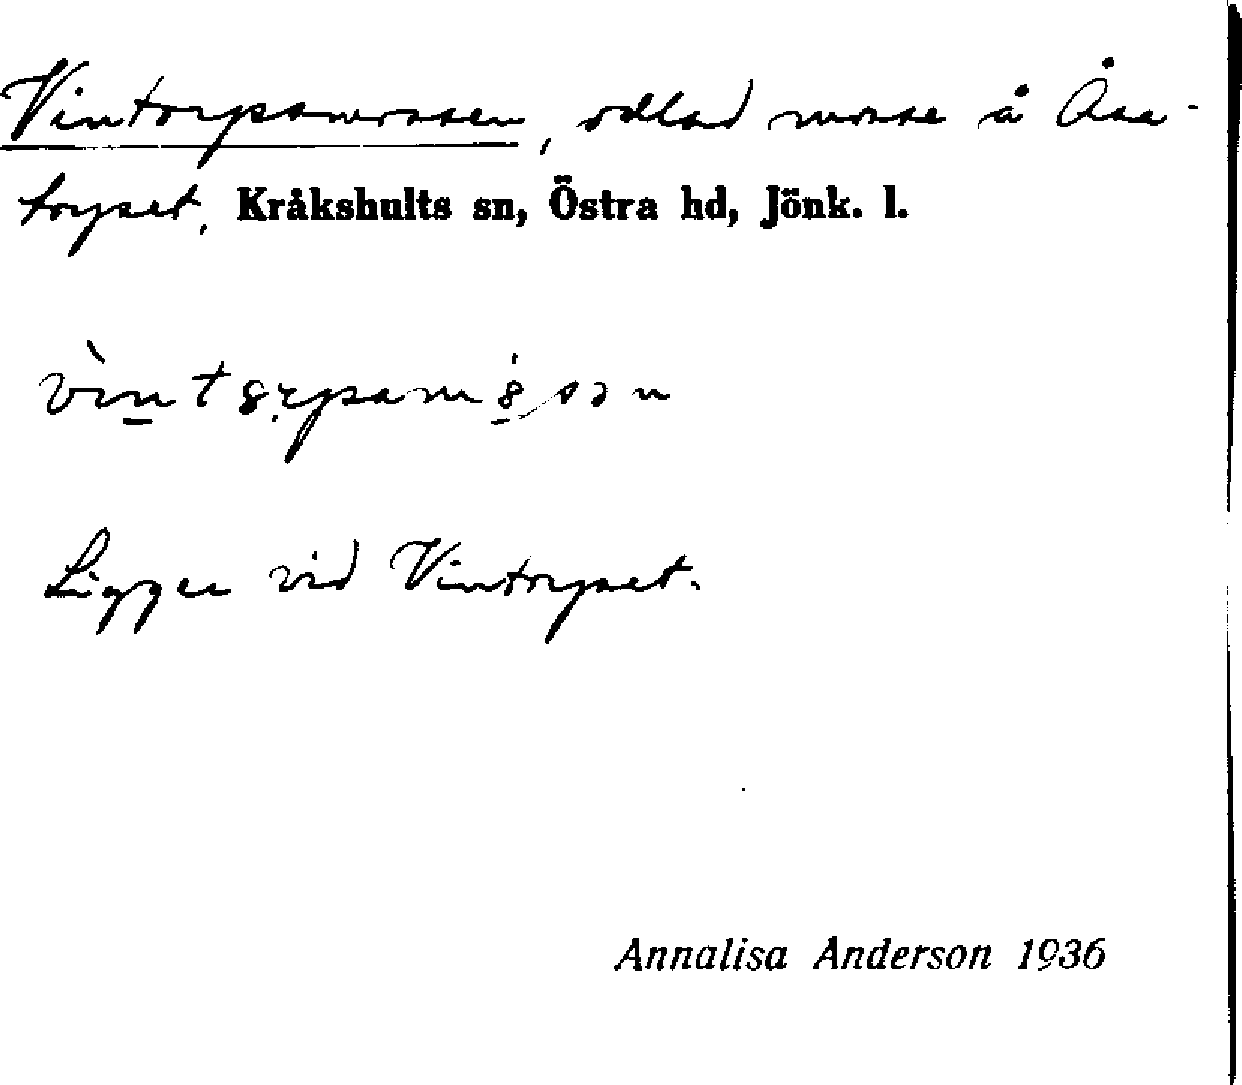 Vintorpsmossen, odlad mosse å Åsa-
torpset, Kråkshults sn, Östra hd, Jönk. l.
Ligger vid Vintorpset.
Annalisa Anderson 1936